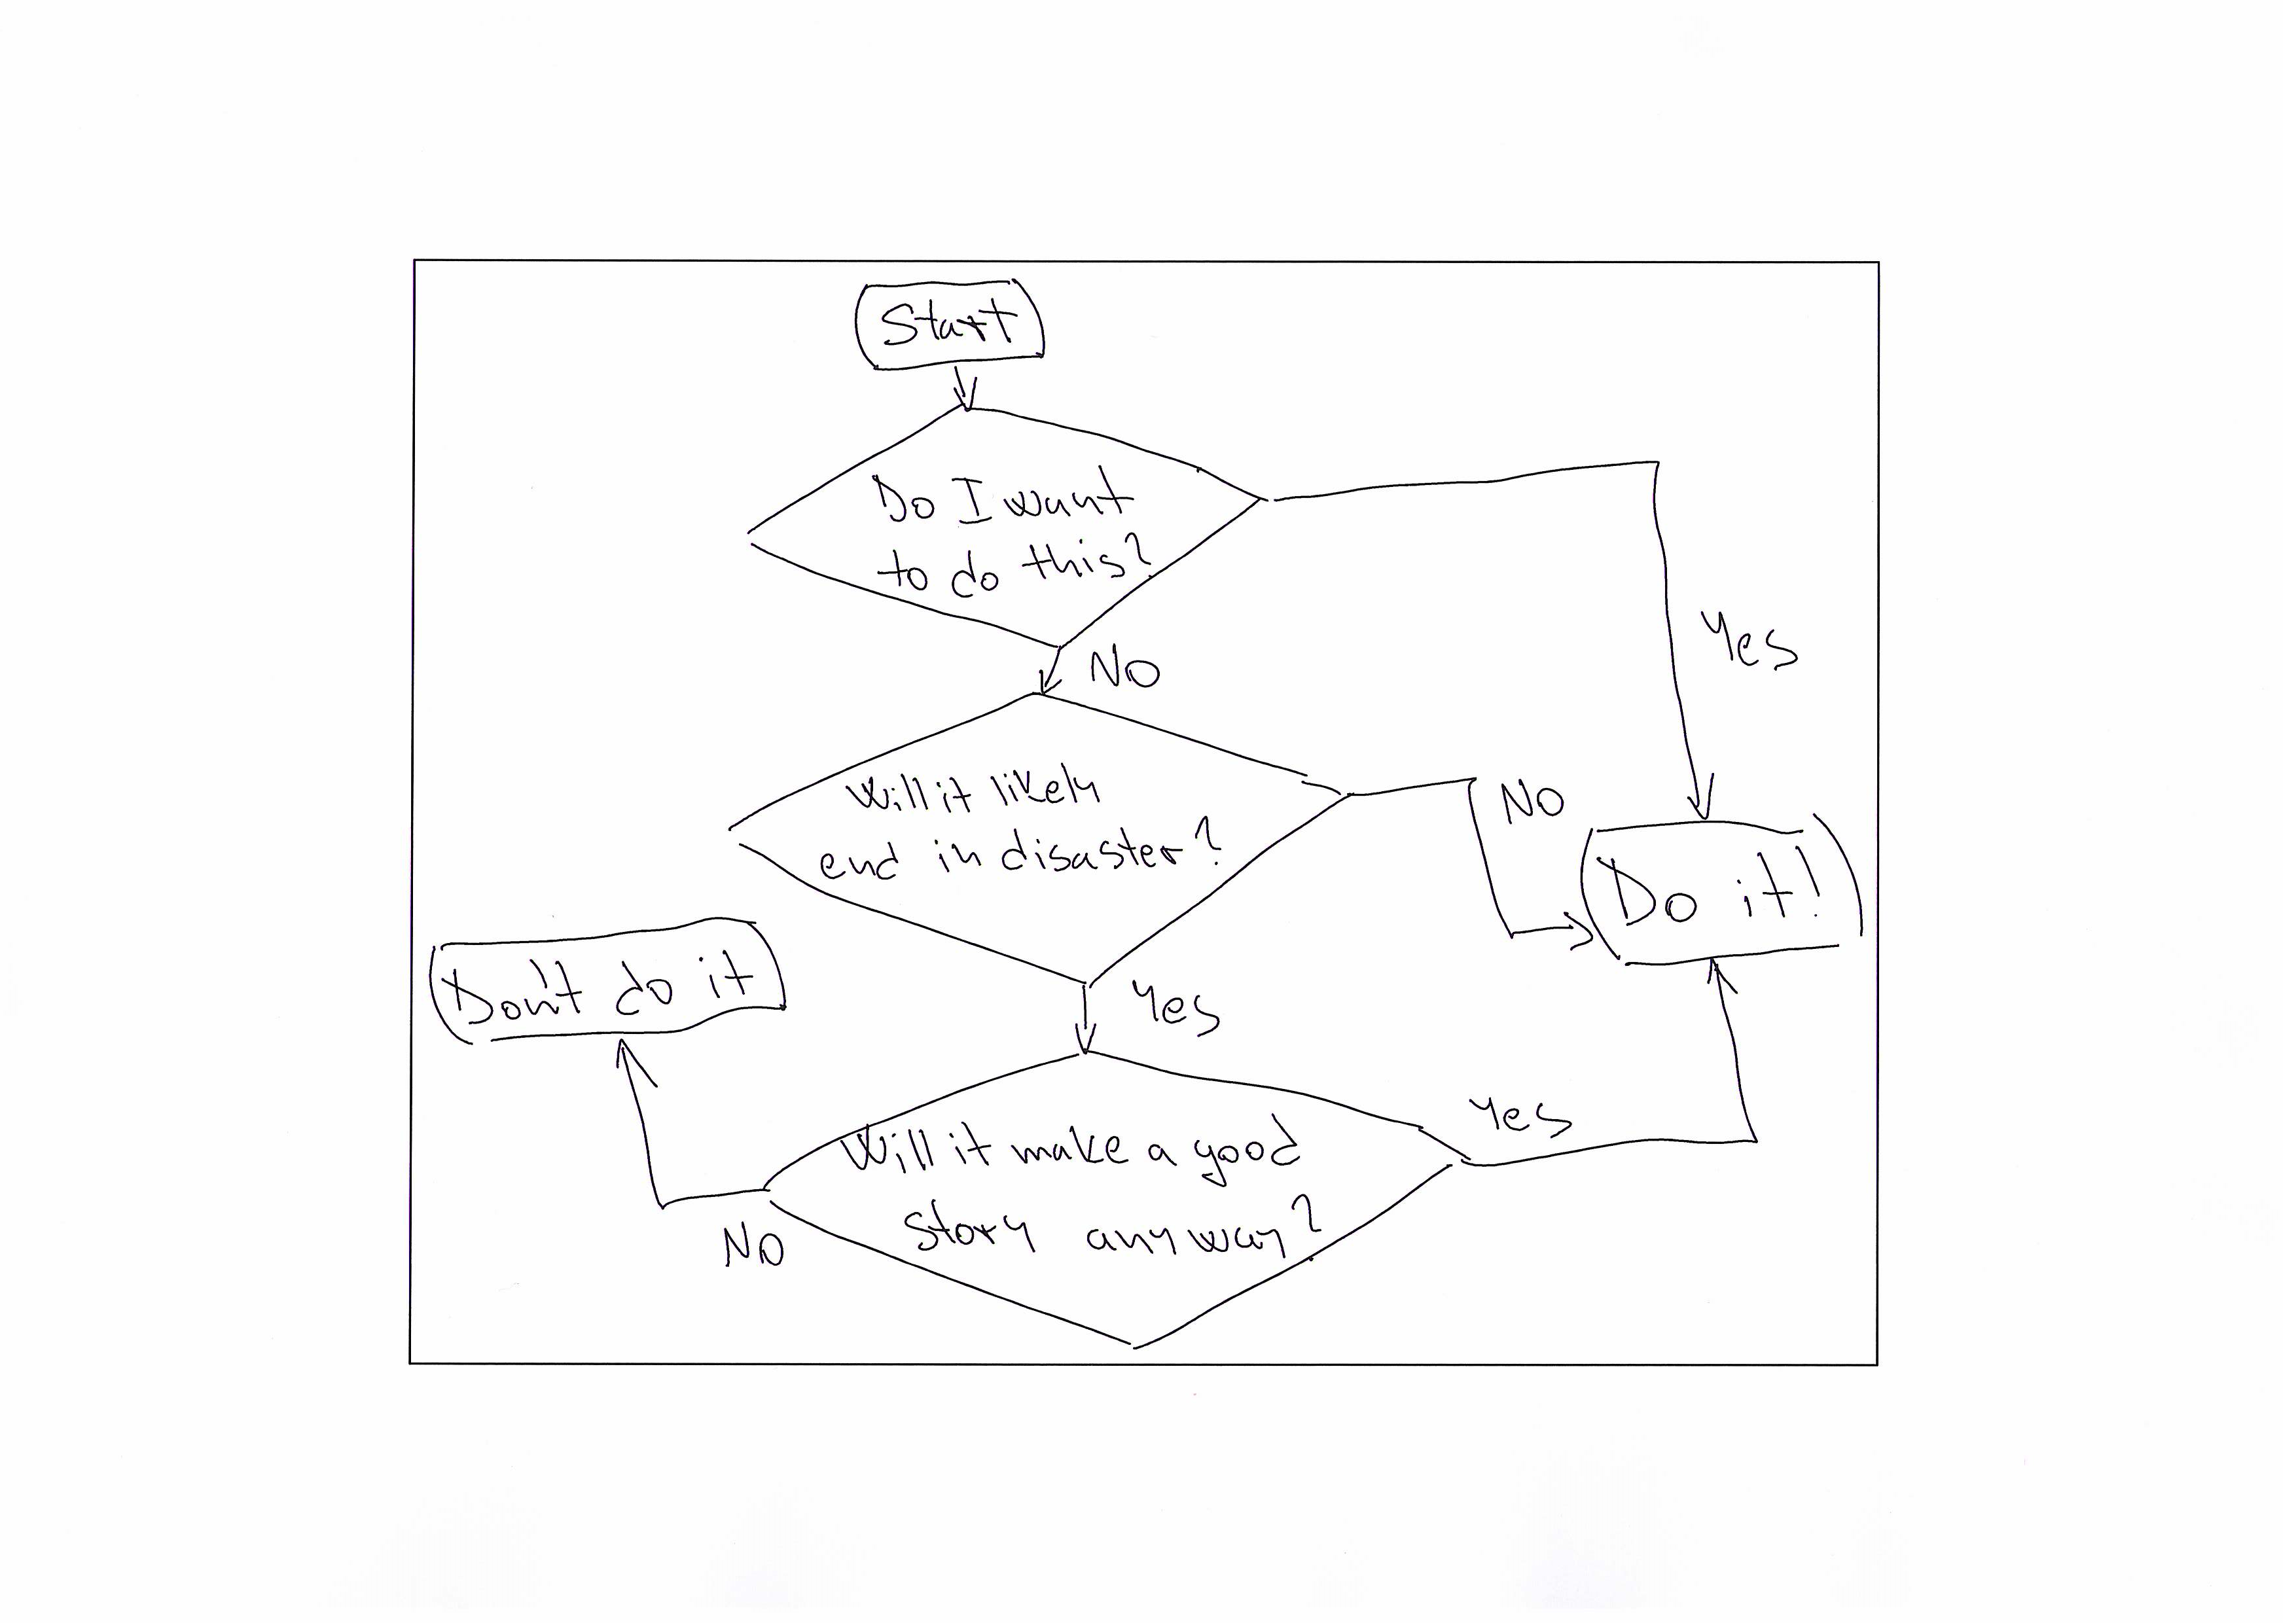 Start
Do I want
to do this?
Yes
No
Will it likely
end in disaster?
No
Do it!
Don't do it
Yes
Yes
Will it make a good
story anyway?
No